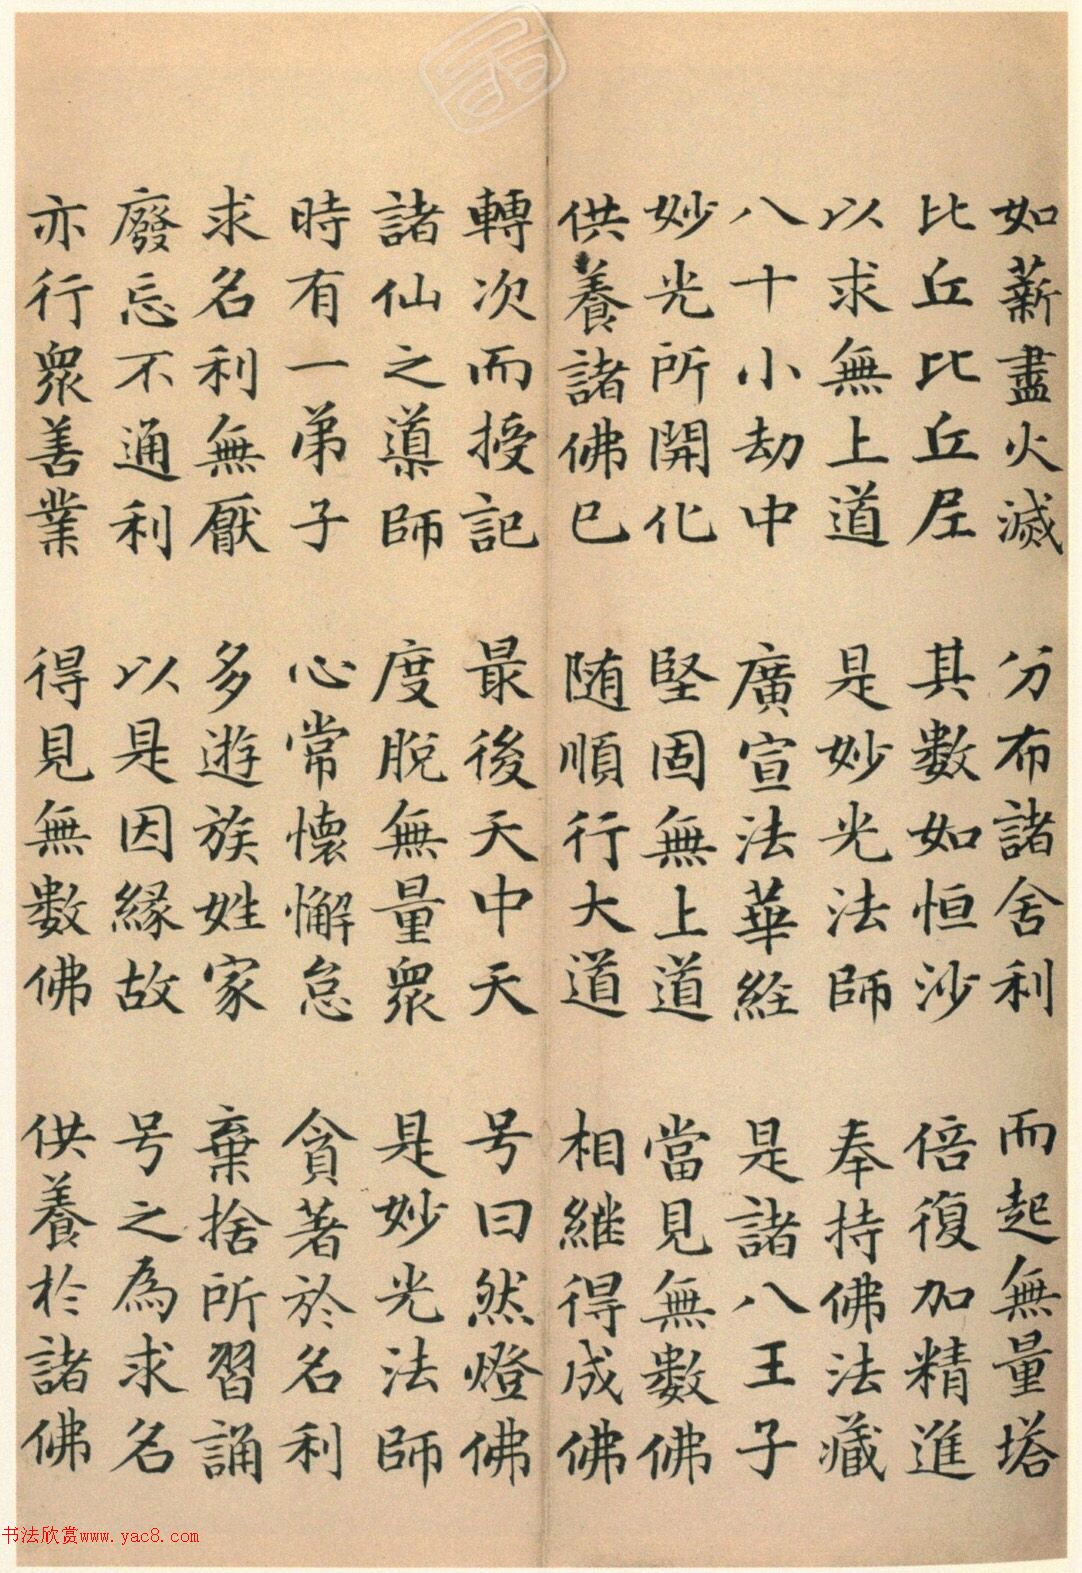 如薪盡火滅 分布諸舍利 而起無量塔
比丘比丘尼 其數如恒沙 倍復加精進
以求無上道 是妙光法師 奉持佛法藏
八十小劫中 廣宣法華經 是諸八王子
妙光所開化 堅固無上道 當見無數佛
供養諸佛已 随順行大道 相継得成佛
轉次而授記 最後天中天 号曰然燈佛
諸仙之導師 度脫無量眾 是妙光法師
時有一弟子 心常懷懈怠 貪著於名利
求名利無厭 多遊族姓家 棄捨所習誦
廢忘不通利 以是因緣故 号之為求名
亦行眾善業 得見無數佛 供養於諸佛
书法欣赏www.yac8.com